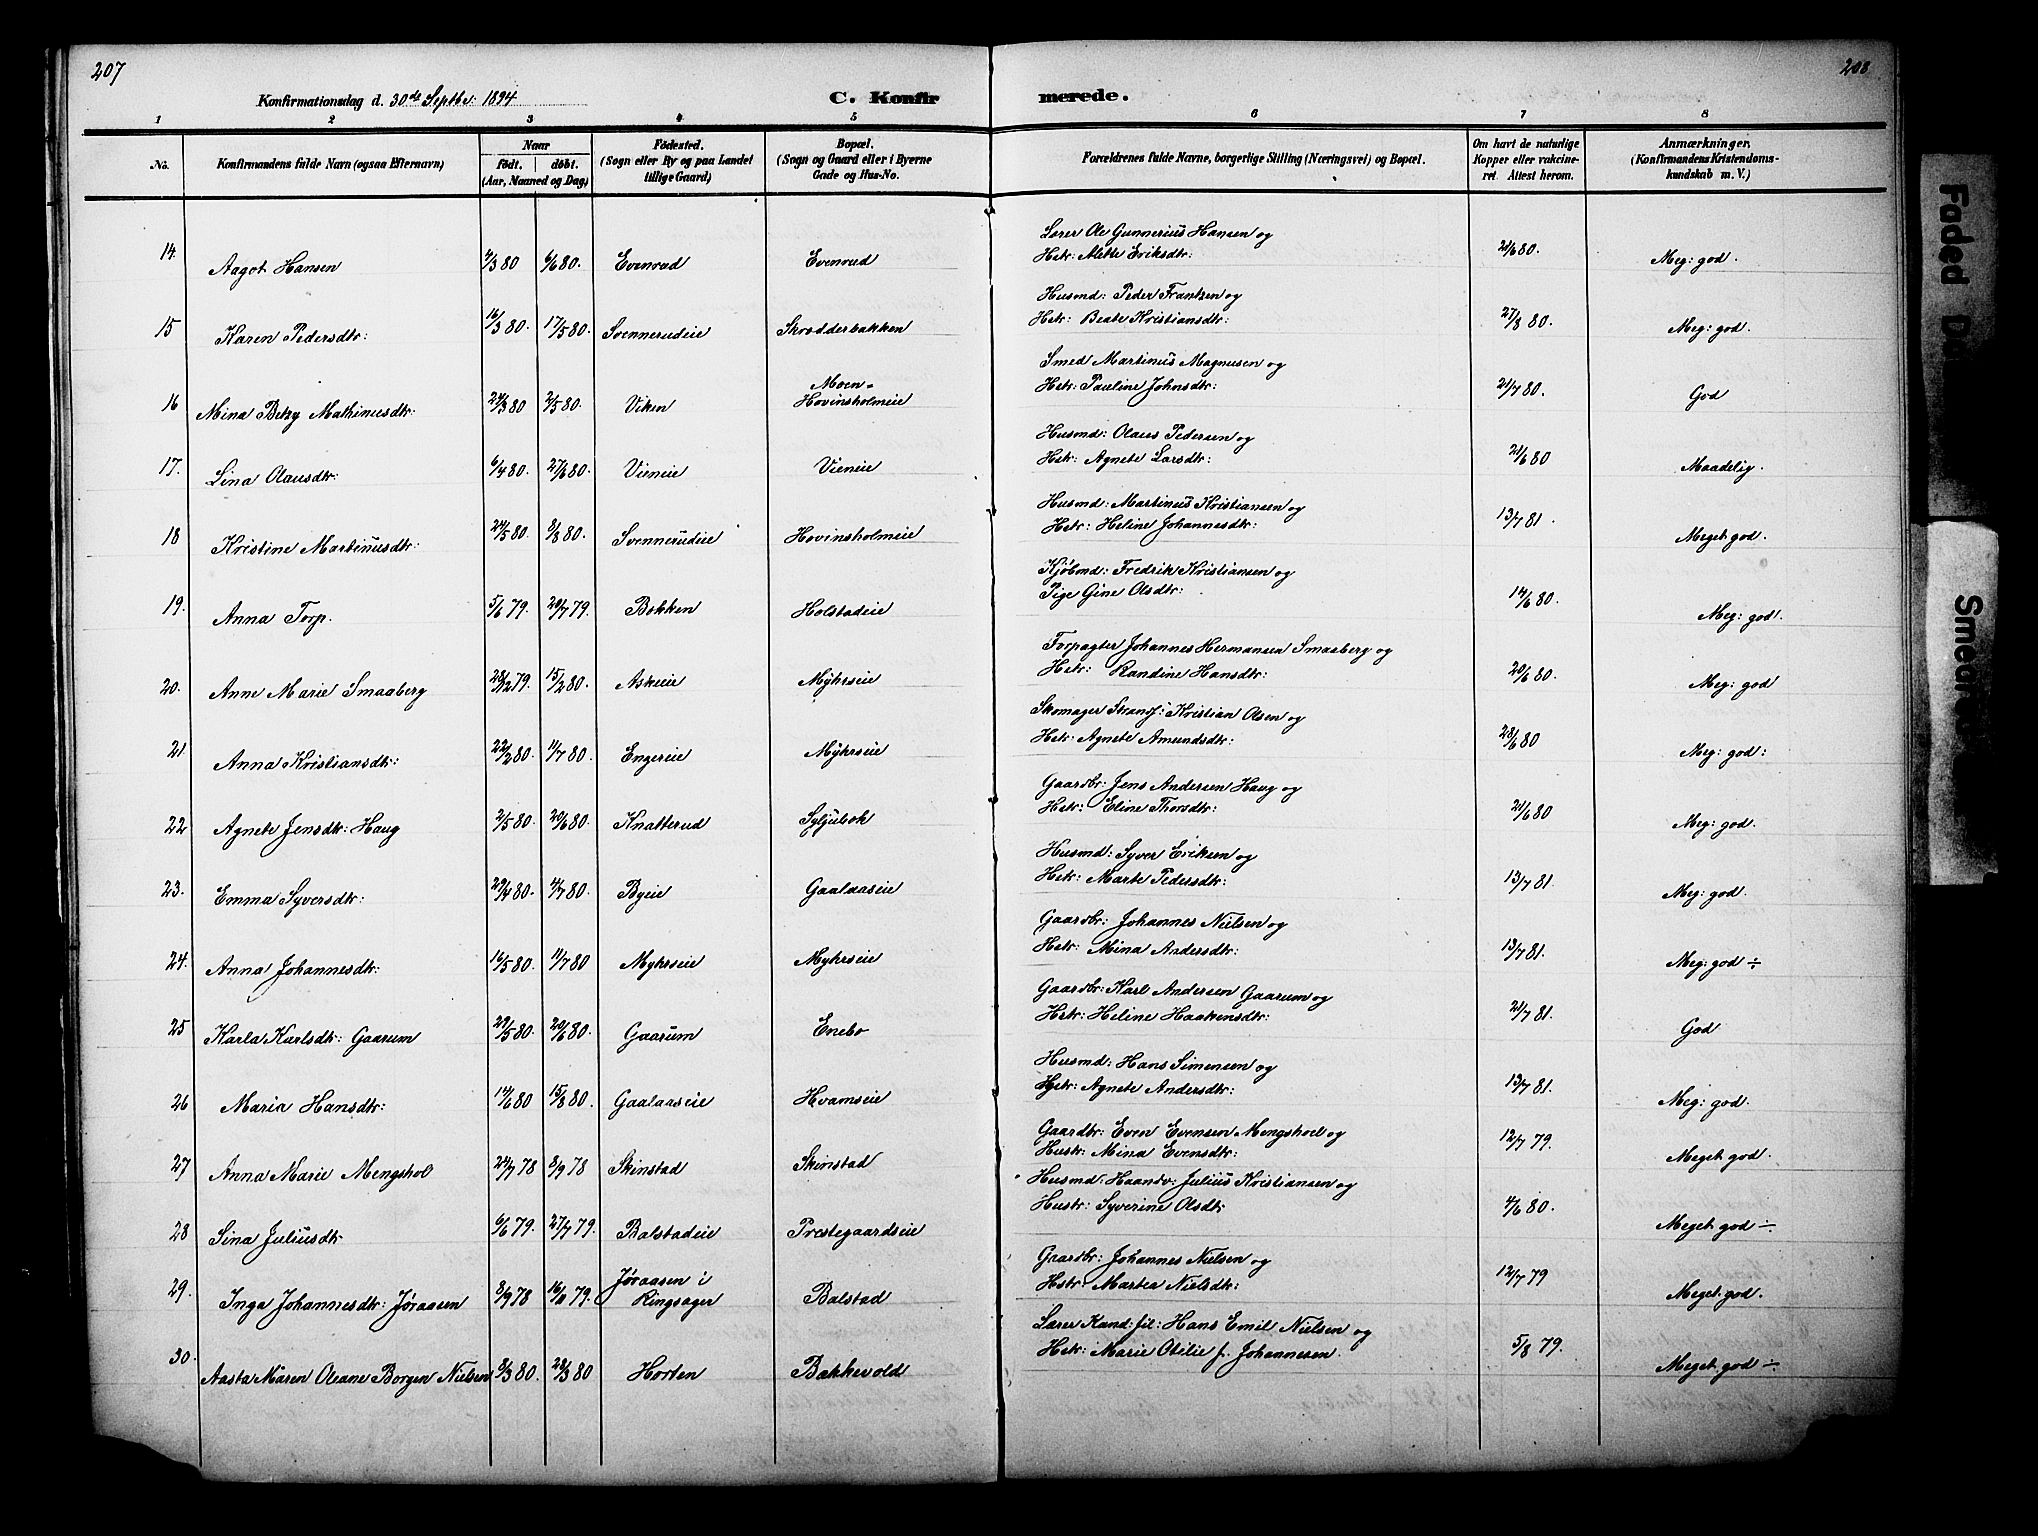 207
208
Konfirmationsdag d. 30de Septbr: 1894
C. Konfir merede.
1 2 3 4 5 6 7 8
No. Konfirmandens fulde Navn (ogsaa Efternavn) Naar födt. döbt. (Aar, Maaned og Dag) Födested. (Sogn eller By og paa Landet tillige Gaard) Bopæl. (Sogn og Gaard eller i Byerne Gade og Hus-No. Forældrenes fulde Navne, borgerlige Stilling (Næringsvei) og Bopæl. Om havt de naturlige Kopper eller vakcineret. Attest herom. Anmærkninger. (Konfirmandens Kristendomskundskab m. V.)
Lærer Ole Gunnerius Hansen og
14. Aagot Hansen 4/3 80 6/6 80. Evenrud Evenrud Hstr: Alette Eriksdtr: 21/6 80. Meg: god.
Husmd: Peder Frantzen og
15 Karen Pedersdtr: 16/3 80. 17/5 80. Svennerudeie Skrædderbakken Hstr: Beate Kristiansdtr: 27/8 80. Meg: god.
Smed Martinus Magnusen og
16 Mina Betzy Mathinusdtr: 24/3 80 2/5 80. Viken Moen- Hovinsholmeie Hstr: Pauline Johnsdtr: 21/7 80. God
Husmd: Olaus Pedersen og
17. Lina Olausdtr: 6/4 80. 27/6 80. Vieneie Vieneie Hstr: Agnete Larsdtr: 21/6 80 Maadelig.
Husmd: Martinus Kristiansen og
18 Kristine Martinusdtr: 24/5 80. 8/8 80. Svennerudeie Hovinsholmeie Hstr: Heline Johannesdtr: 13/7 81. Meget god.
Kjöbmd: Fredrik Kristiansen og
19. Anna Torp. 5/6 79. 20/7 79. Bakken Holstadeie Pige Gine Olsdtr: 14/6 80. Meg: god.
Forpagter Johannes Hermansen Smaaberg og
20. Anne Marie Smaaberg 28/12 79. 15/2 80. Askeie Myhrseie Hstr: Randine Hansdtr: 20/6 80. Meg: god
Skomager Strandf: Kristian Olsen og
21. Anna Kristiansdtr: 22/2 80. 11/7 80. Engereie Myhrseie Hstr: Agnete Amundsdtr: 28/6 80 Meg: god:
Gaardbr: Jens Andersen Haug og
22 Agnete Jensdtr: Haug 2/5 80. 20/6 80. Knatterud Syljubæk Hstr: Eline Thorsdtr: 21/6 80 Meg: god.
Husmd: Syver Eriksen og
23. Emma Syversdtr: 29/4 80. 4/7 80. Byeie Gaalaaseie Hstr: Marte Pedersdtr: 13/7 81. Meg: god.
Gaardbr: Johannes Nielsen og
24. Anna Johannesdtr: 16/5 80. 11/7 80 Myhrseie Myhrseie Hstr: Mina Andersdtr: 13/7 81. Meg: god ÷
Gaardbr: Karl Andersen Gaarum og
25 Karla Karlsdtr: Gaarum 29/5 80. 20/6 80. Gaarum Enebo Hstr: Heline Haakensdtr: 21/7 81. God
Husmd: Hans Simensen og
26 Maria Hansdtr: 14/6 80 15/8 80. Gaalaaseie Hvamseie Hstr: Agnete Andersdtr: 13/7 81. Meg: god.
Gaardbr: Even Evensen Mengshoel og
27 Anna Marie Mengshol 24/7 78 8/9 78 Skinstad Skinstad Hustr: Mina Evensdtr: 12/7 79. Meget god.
Husmd: Haandv: Julius Kristiansen og
28 Sina Juliusdtr 6/6 79. 27/7 79. Balstadeie Prestegaardseie Hustr: Syverine Olsdtr 4/6 80. Meget god ÷
Gaardbr: Johannes Nielsen og
29. Inga Johannesdtr: Jøraasen 8/9 78 Jøraasen i Ringsager Balstad Hstr: Martea Nielsdtr: 12/7 79 Meget god.
Lærer Kand: fil: Hans Emil Nielsen og
30. Aasta Maren Oleane Borgen Nielsen 8/3 80. 28/3 80 Horten Bakkevold Hstr: Marie Otilie f. Johannesen. 5/8 79. Meget god ÷
Faded
Smeared